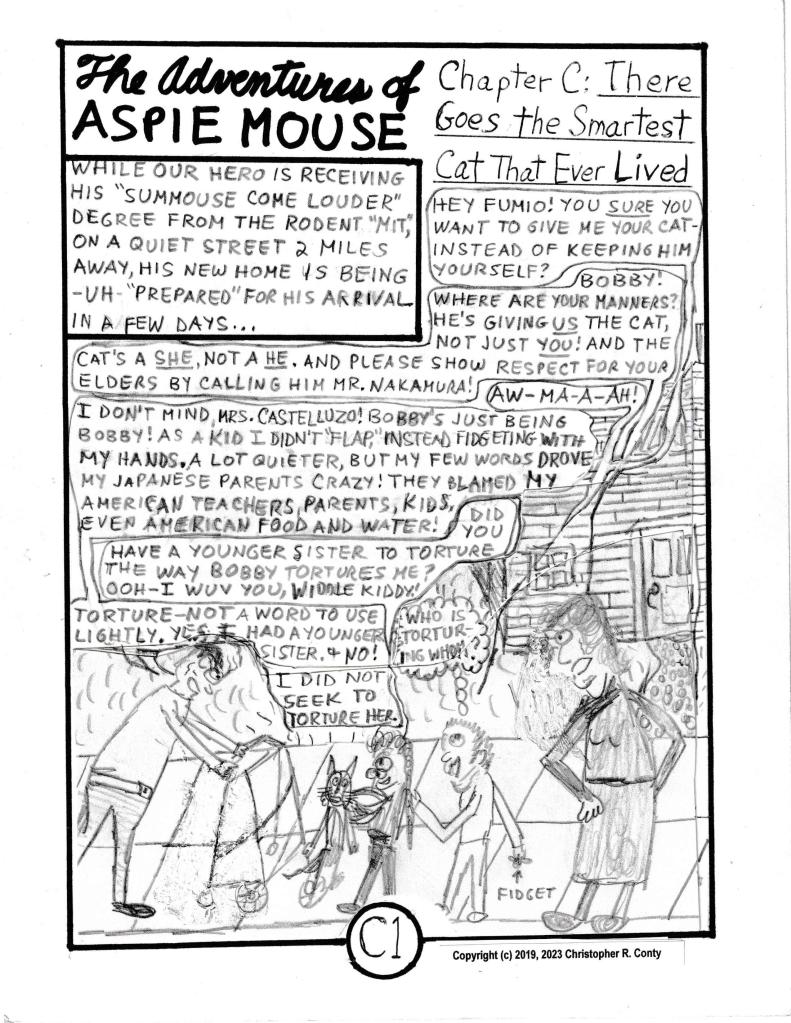 The Adventures of
ASPIE MOUSE
Chapter C: There
Goes the Smartest
Cat That Ever Lived
WHILE OUR HERO IS RECEIVING
HIS "SUMMOUSE COME LOUDER"
DEGREE FROM THE RODENT "MIT,"
ON A QUIET STREET 2 MILES
AWAY, HIS NEW HOME IS BEING
-UH- "PREPARED" FOR HIS ARRIVAL
IN A FEW DAYS...
HEY FUMIO! YOU SURE YOU
WANT TO GIVE ME YOUR CAT-
INSTEAD OF KEEPING HIM
YOURSELF?
BOBBY!
WHERE ARE YOUR MANNERS?
HE'S GIVING US THE CAT,
NOT JUST YOU! AND THE
CAT'S A SHE, NOT A HE. AND PLEASE SHOW RESPECT FOR YOUR
ELDERS BY CALLING HIM MR. NAKAMURA!
AW-MA-A-AH!
I DON'T MIND, MRS. CASTELLUZO! BOBBY'S JUST BEING
BOBBY! AS A KID I DIDN'T "FLAP," INSTEAD FIDGETING WITH
MY HANDS. A LOT QUIETER, BUT MY FEW WORDS DROVE
MY JAPANESE PARENTS CRAZY! THEY BLAMED MY
AMERICAN TEACHERS, PARENTS, KIDS,
EVEN AMERICAN FOOD AND WATER!
DID
YOU
HAVE A YOUNGER SISTER TO TORTURE
THE WAY BOBBY TORTURES ME?
OOH-I WUV YOU, WIDDLE KIDDY!
TORTURE-NOT A WORD TO USE
LIGHTLY. YES I HAD A YOUNGER
SISTER. & NO!
I DID NOT
SEEK TO
TORTURE HER.
WHO IS
TORTUR-
ING WHO?
FIDGET
C1
Copyright (c) 2019, 2023 Christopher R. Conty